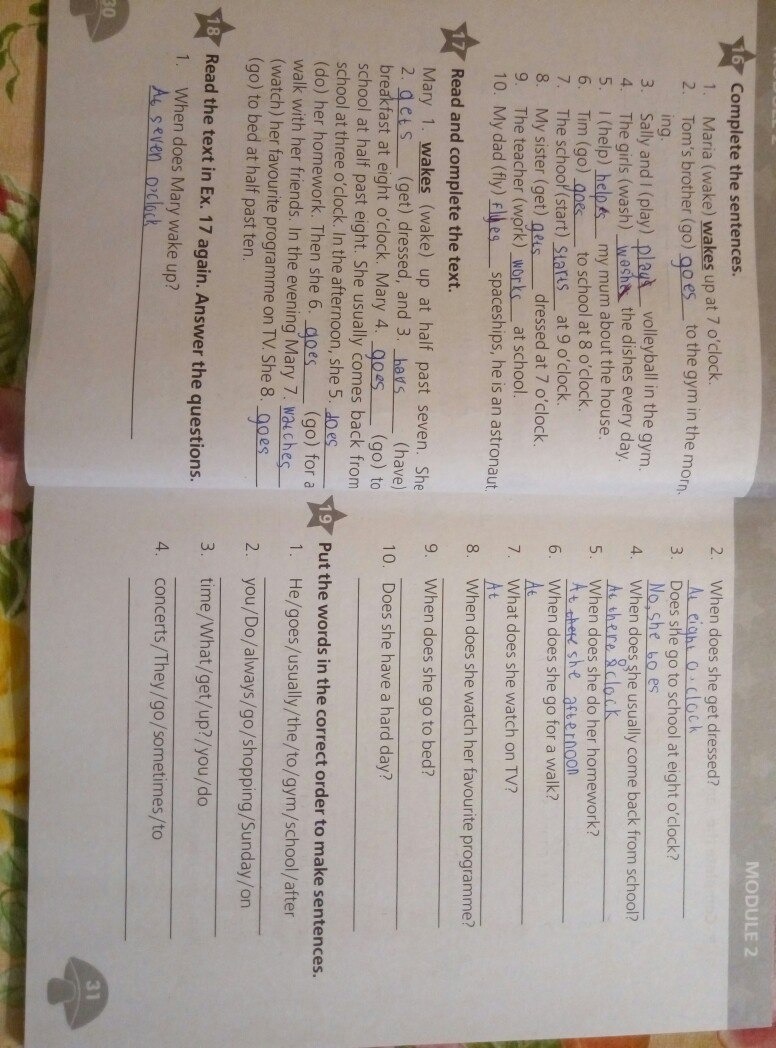 16 Complete the sentences.
1. Maria (wake) wakes up at 7 o'clock.
2. Tom's brother (go) goes to the gym in the morn
ing.
3. Sally and I (play) plays volleyball in the gym.
4. The girls (wash) washes the dishes every day.
5. I (help) helpes my mum about the house.
6. Tim (go) goes to school at 8 o'clock.
7. The school (start) starts at 9 o'clock.
8. My sister (get) gets dressed at 7 o'clock.
9. The teacher (work) works at school.
10. My dad (fly) flyes spaceships, he is an astronaut.
17 Read and complete the text.
Mary 1. wakes (wake) up at half past seven. She
2. gets (get) dressed, and 3. havs (have)
breakfast at eight o'clock. Mary 4. goes (go) to
school at half past eight. She usually comes back from
school at three o'clock. In the afternoon, she 5. does
(do) her homework. Then she 6. goes (go) for a
walk with her friends. In the evening Mary 7. watches
(watch) her favourite programme on TV. She 8. goes
(go) to bed at half past ten.
18 Read the text in Ex. 17 again. Answer the questions.
1. When does Mary wake up?
At seven o'clock
30
MODULE 2
2. When does she get dressed?
At eight o'clock
3. Does she go to school at eight o'clock?
No, she does
4. When does she usually come back from school?
At there o'clock
5. When does she do her homework?
At she afternoon
6. When does she go for a walk?
At
7. What does she watch on TV?
At
8. When does she watch her favourite programme?
9. When does she go to bed?
10. Does she have a hard day?
19 Put the words in the correct order to make sentences.
1. He/goes/usually/the/to/gym/school/after
2. you/Do/always/go/shopping/Sunday/on
3. time/What/get/up?/you/do
4. concerts/They/go/sometimes/to
31